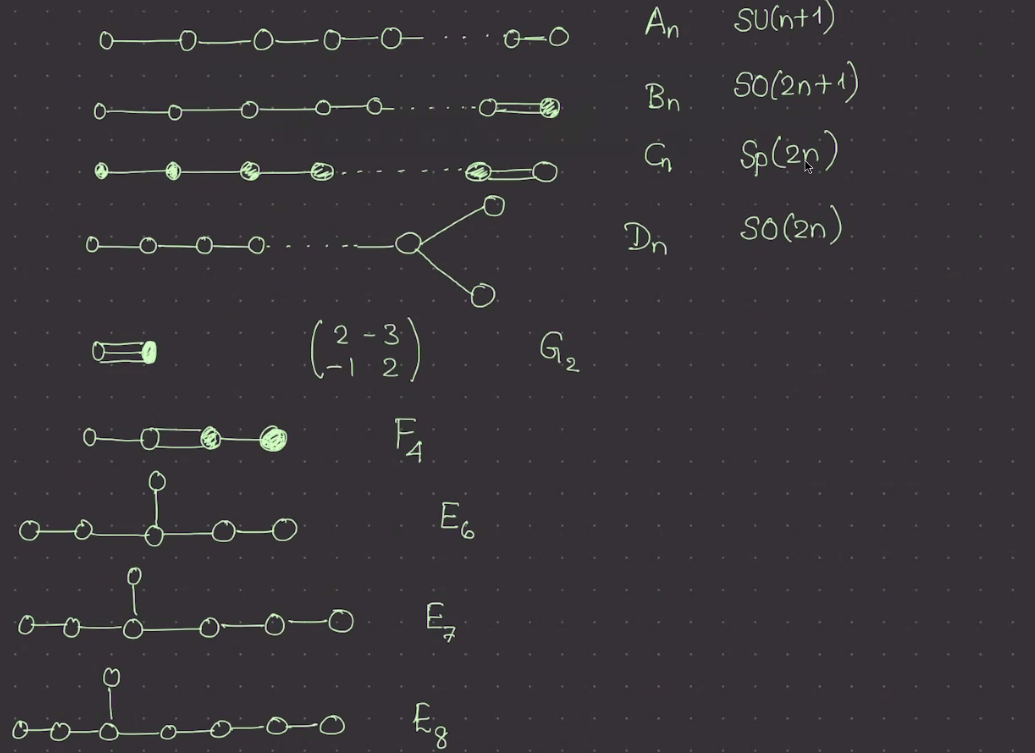 Aₙ SU(n+1)
Bₙ SO(2n+1)
Cₙ Sp(2n)
Dₙ SO(2n)
( 2 -3
-1 2 ) G₂
F₄
E₆
E₇
E₈